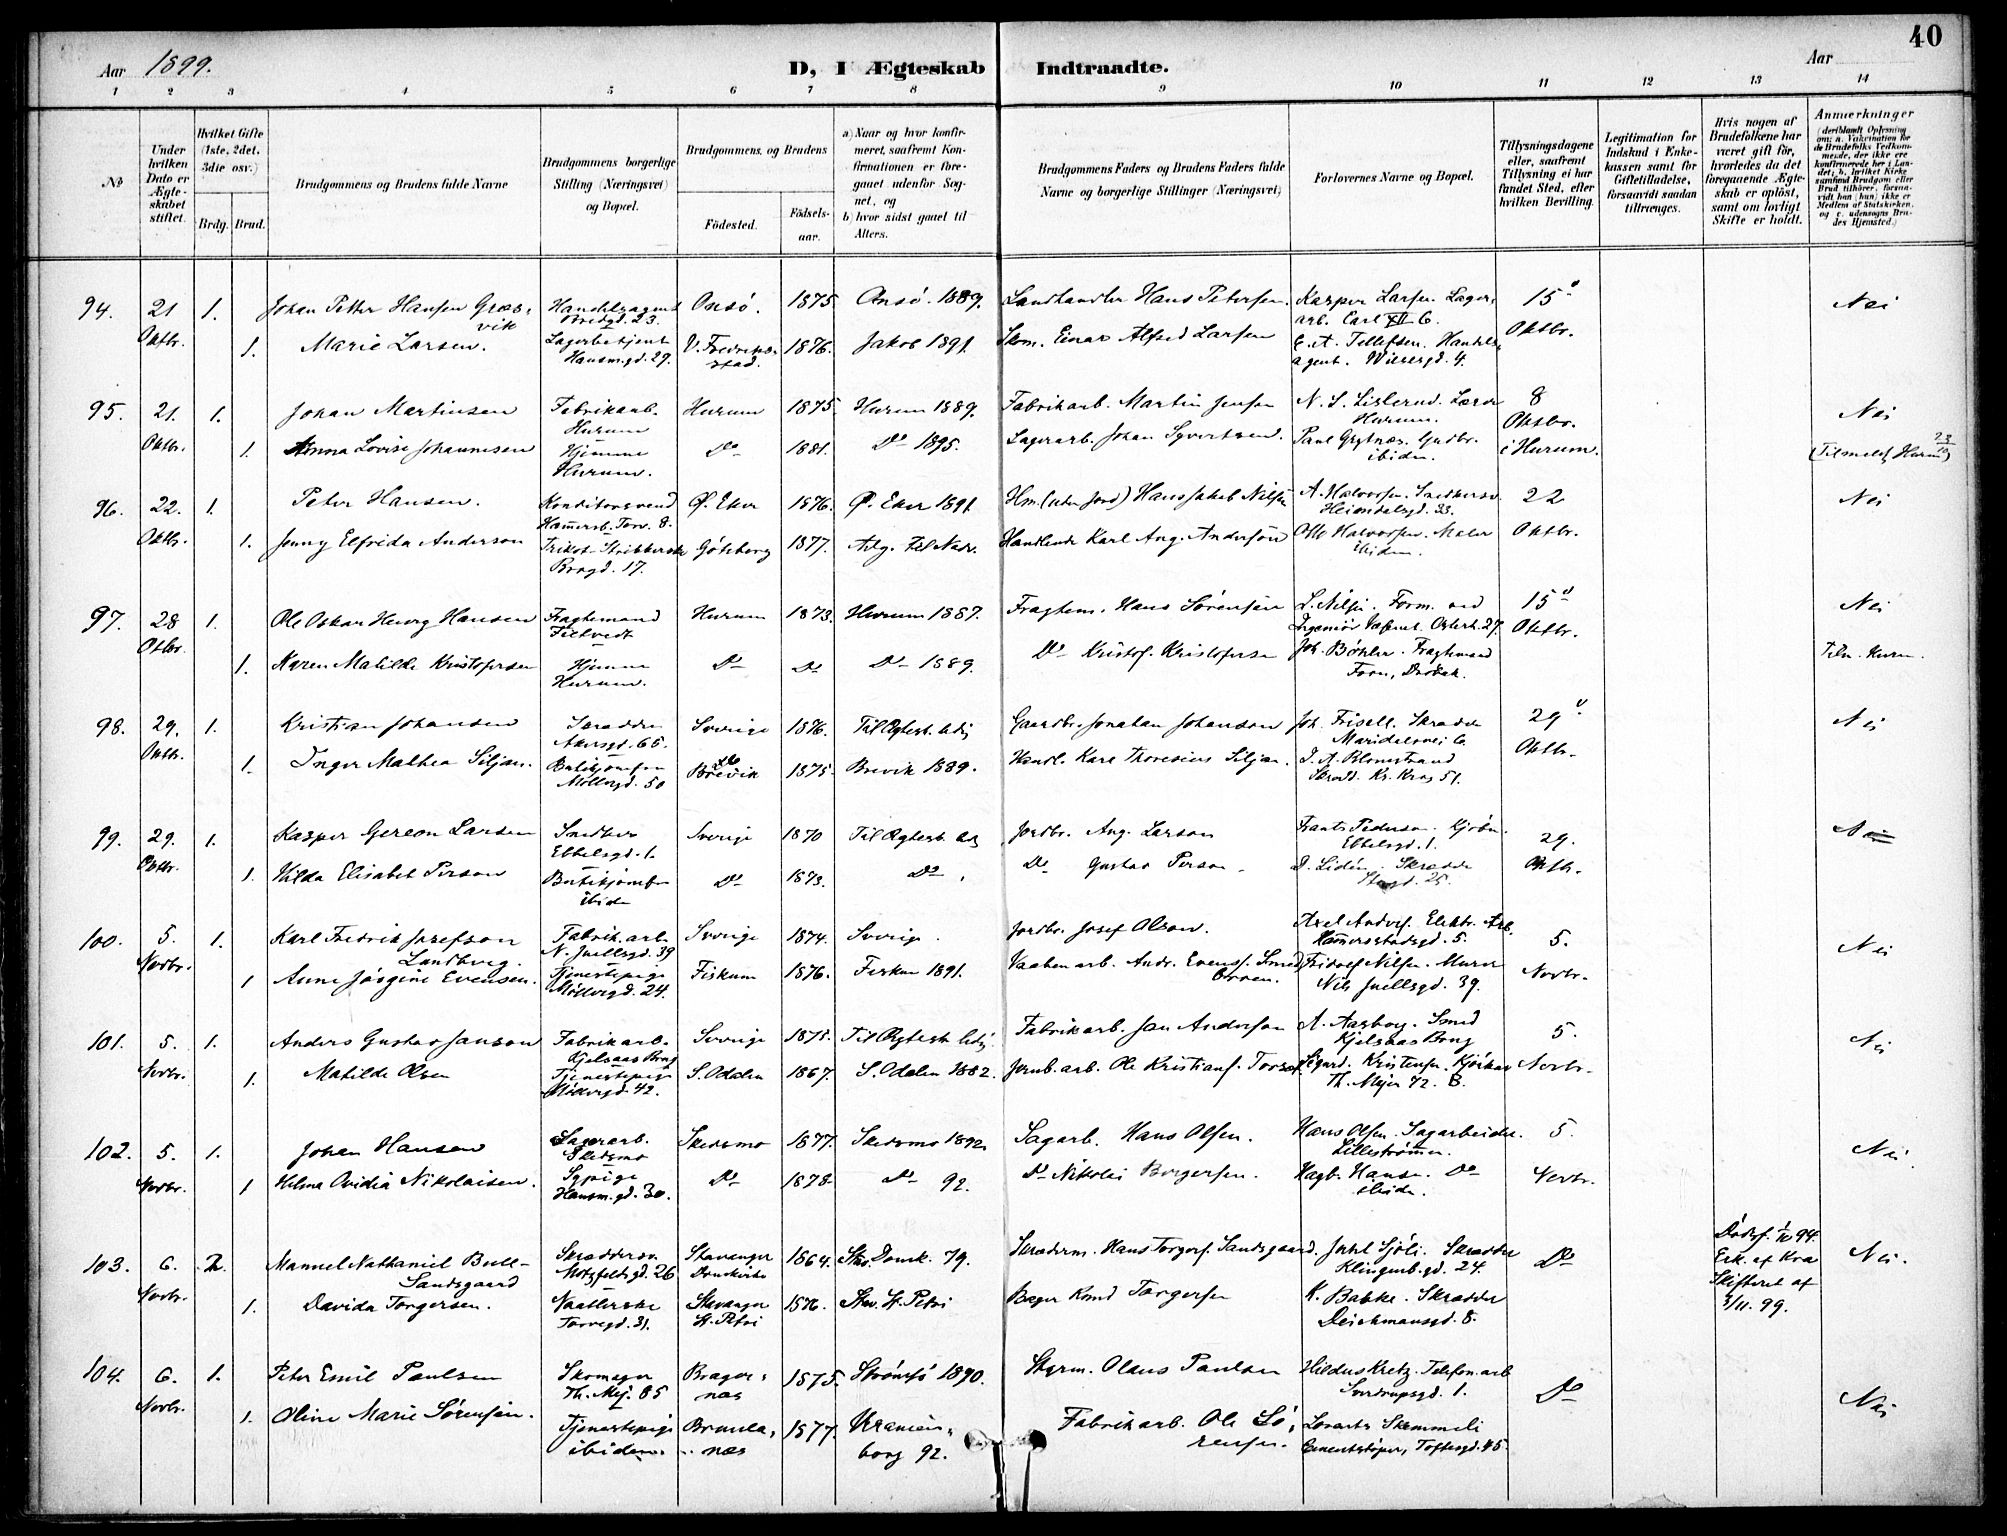 40
Aar 1899. D, I Ægteskab Indtraadte. Aar
1 2 3 4 5 6 7 8 9 10 11 12 13 14
No
Under hvilken Dato er Ægteskabet stiftet.
Hvilket Gifte (1ste, 2det, 3die osv.)
Brdg. Brud.
Brudgommens og Brudens fulde Navne
Brudgommens borgerlige Stilling (Næringsvei) og Bopæl.
Brudgommens og Brudens
Födested. Födsels-aar.
a) Naar og hvor konfirmeret, saafremt Konfirmationen er foregaaet udenfor Sognet, og
b) hvor sidst gaaet til Alters.
Brudgommens Faders og Brudens Faders fulde Navne og borgerlige Stillinger (Næringsvei)
Forlovernes Navne og Bopæl.
Tillysningsdagene eller, saafremt Tillysning ei har fundet Sted, efter hvilken Bevilling.
Legitimation for Indskud i Enkekassen samt for Giftetilladelse, forsaavidt saadan tiltrænges.
Hvis nogen af Brudefolkene har været gift för, hvorledes da det foregaaende Ægteskab er oplöst, samt om lovligt Skifte er holdt.
Anmærkninger
(deriblandt Oplysning om: a. Vakcination for de Brudefolks Vedkommende, der ikke ere konfirmerede her i Landet; b. hvilket Kirkesamfund Brudgom eller Brud tilhörer, forsaavidt han (hun) ikke er Medlem af Statskirken, og c. udensogns Brudes Hjemsted.)
94. 21 1. Johan Petter Hansen Græsvik Handelsagent Bredgd. 23. Onsö. 1875 Onsö. 1889. Landhandler Hans Petersen. Kasper Larsen Lagerarb. Carl XII G. 15 Nei
Oktbr. 1. Marie Larsen. Lagerbetjent Hausm.gd. 29. V. Fredrikstad. 1876. Jakob 1891 Skom. Einar Alfred Larsen E. A. Tellefsen. Handelsagent. Wesselsgd. 4. Oktbr.
95. 21. 1. Johan Martinsen Fabrikarb. Hurum Hurum 1875. Hurum 1889. Fabrikarb. Martin Jensen N. S. Lislerud. Lærer Hurum. 8 Nei
Oktbr. 1. Anna Lovise Johannesen Hjemme Hurum. Do 1881. Do 1895. Lagerarb. Johan Syvertsen. Paul Grytnæs. Gudbr. ibiden. Oktbr. i Hurum. (Tilmeldt Hurum 23/10)
96. 22. 1. Peter Hansen. Konditorsvend Hammersb. Torv. 8. Ø. Eker 1876. Ø. Eker 1891 Hm. (uden Jord) Hans Jakob Nilsen A. Halvorsen. Snedkersv. Heimdalsgd. 33. 22 Nei
Oktbr. 1. Jenny Elfrida Anderson Trikot-Strikkerske Brogd. 17. Göteborg 1877. Adg. til Nadv. Handlende Karl Aug. Anderson Ole Halvorsen. Maler ibiden. Oktbr.
97. 28 1. Ole Oskar Henry Hansen Fragtemand Filtvedt Hurum 1873. Hurum 1887. Fragtem. Hans Sörensen L. Nilsen. Form. ved 15 Nei
Otbr. 1. Karen Matilde Kristofersen Hjemme Hurum. Do Do Do 1889. Do Kristof. Kristofersen Joh. Böhler. Fragtemand Drøbak. Oktbr. Tilm. Hurum.
98. 29. 1. Kristian Johansen Skrædder Akersgd. 65. Sverige 1876. Til Ægtesk. ledig Gaardbr. Jonatan Johanson Joh. Frisell. Skrædder Maridalsvei 6. 29 Nei
Oktbr. 1. Inger Mathea Siljan. Butikjomfru Möllergd. 50 Brevik 1875. Brevik 1889. Handl. Karl Thoresius Siljan. J. A. Blomstrand Skræd. Kr. Krog 51. Oktbr.
99. 29. 1. Kasper Gereon Larsen Snedker Ebbelsgd. 1. Sverige 1870 Til Ægtesk. led. Jordbr. Aug. Larson Frants Pederson. Kjöbm. Ebbelsgd. 1. 29. Nei
Oktbr. 1. Hilda Elisabet Person Butikjomfru ibiden Do 1873. Do. Do Gustav Person. D. Liden. Skrædder Storgd. 25. Oktbr.
100. 5. 1. Karl Fredrik Josefson Landberg. Fabrik.arb. N. Juellsgd. 39 Sverige 1874. Sverige. Jordbr. Josef Olson. Axel Andvsf. Elektr. Arb. Hammerstadsgd. 5. 5. Nei
Novbr. 1 Anne Jörgine Evensen. Tjenestepige Möllergd. 24. Fiskum 1876. Fiskum 1891. Vaabenarb. Andr. Evens. Smed Fridolf Nilsen. Murer Nils Juellsgd. 39. Novbr.
101. 5. 1. Anders Gustav Janson Fabrikarb. Kjelsaas Brug Sverige 1875. Til Ægtesk. ledig. Fabrikarb. Jan Anderson A. Aasbog. Smed Kjelsaas Brug 5. Nei
Novbr. 1. Matilde Olsen Tjenestepige Möllergd. 42. S. Odalen 1867. S. Odalen 1882. Jernb.arb. Ole Kristians. Sigurd. Kristensen. Th. Mejer 72. B. Novbr.
102. 5. 1. Johan Hansen Lagerarb. Skedsmo Skedsmo 1877. Skedsmo 1892. Sagarb. Hans Olsen. Hans Olsen. Sagarbeider. Lilleströmmen. 5. Nei.
Novbr. 1 Helma Ovidia Nikolaisen. Sypige Hausm.gd. 30. Do 1878. Do 92. Do Nikolai Borgersen. Hagb. Hansen. Do ibiden. Novbr.
103. 6. 2. Manuel Nathaniel Bull-Sandsgaard Skræddersv. Motzfeldsgd. 26 Stavanger Domkirke 1864. Stav. Domk. 79. Skrædderm. Hans Torgers. Sandsgaard. Johl Sjöli. Skrædder Klingenb.gd. 24. Do Dödsf. 94. Erk. af Kra Skifteret af 3/11. 99. Nei.
Novbr. 1. Davida Torgersen. Naatlerske Torvegd. 31. Stavanger St. Petri 1876. Stav. St. Petri Bager Knud Torgersen K. Babke. Skrædder Deichmansgd. 8.
104. 6. 1. Peter Emil Paulsen Skomager Th. Mej. 85 Bragernæs 1875. Strömsö 1890. Styrm. Olaus Paulsen Hildus Kretz. Telefonarb Sverdrupsgd. 1. Do Nei
Novbr. 1. Oline Marie Sörensen. Tjenestepige ibiden. Brunlanæs 1877. Uranienborg 92. Fabrikarb. Ole Sörensen. Skemmeli Cementstöper, Toftesgd. 45.